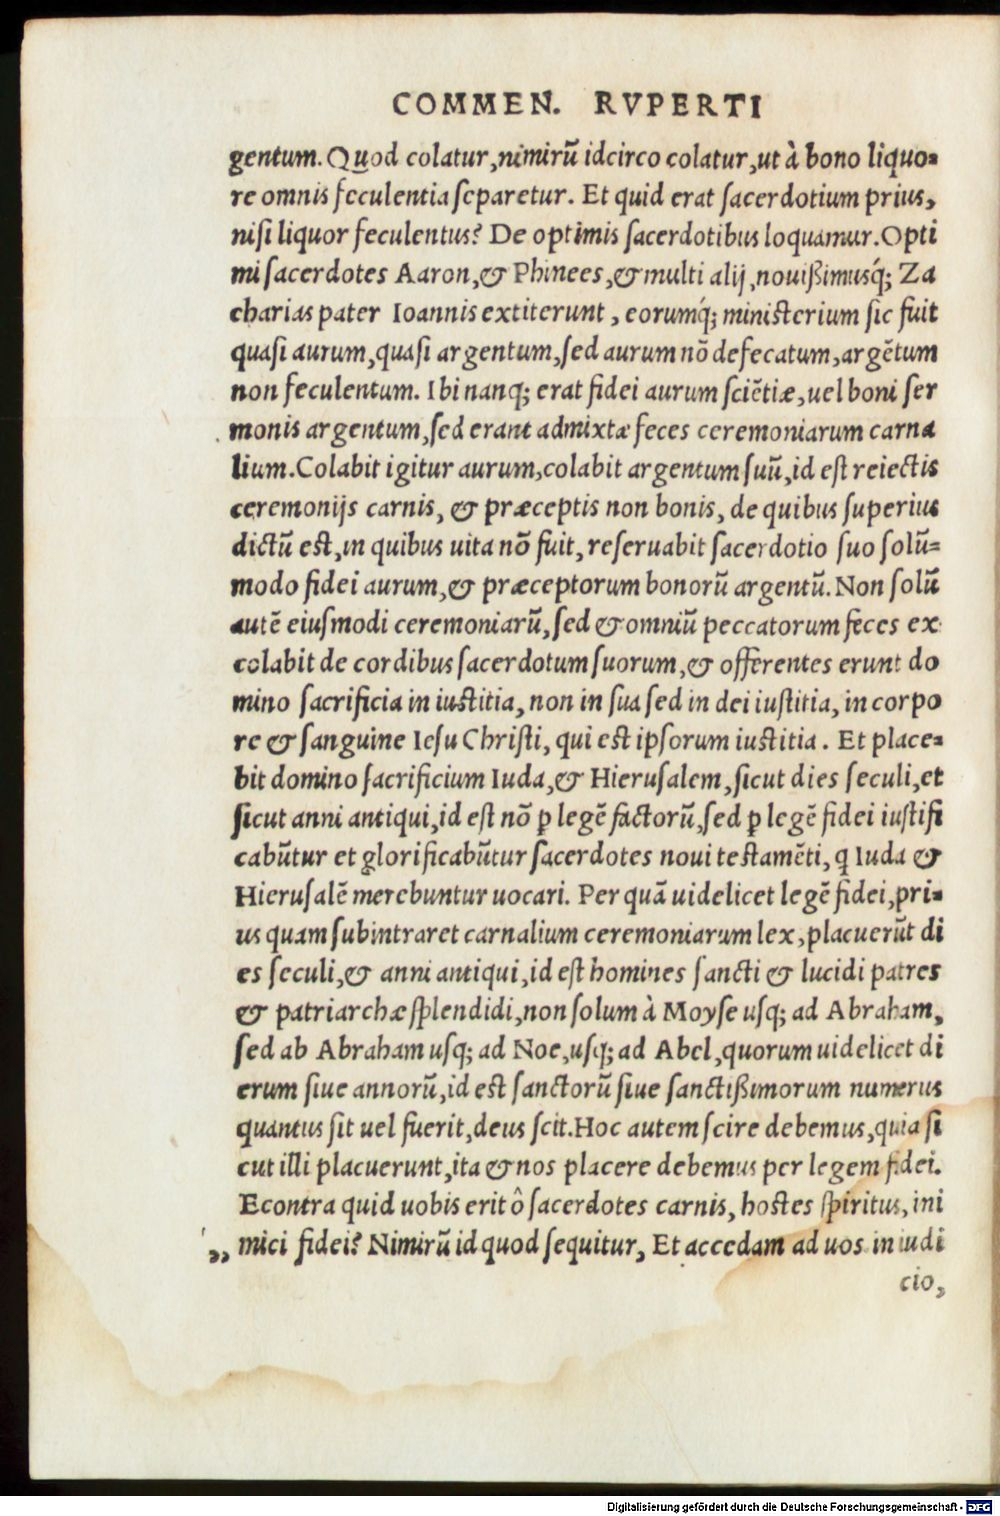 COMMEN. RVPERTI
gentum. Quod colatur, nimirũ idcirco colatur, ut à bono liquo-
re omnis feculentia separetur. Et quid erat sacerdotium prius,
nisi liquor feculentus? De optimis sacerdotibus loquamur. Opti
mi sacerdotes Aaron, & Phinees, & multi alij, nouißimusq́; Za
charias pater Ioannis extiterunt, eorumq́; ministerium sic fuit
quasi aurum, quasi argentum, sed aurum nõ defecatum, argẽtum
non feculentum. Ibi nanq; erat fidei aurum sciẽtiæ, uel boni ser
monis argentum, sed erant admixtæ feces ceremoniarum carna
lium. Colabit igitur aurum, colabit argentum suũ, id est reiectis
ceremonijs carnis, & præceptis non bonis, de quibus superius
dictũ est, in quibus uita nõ fuit, reseruabit sacerdotio suo solũ-
modo fidei aurum, & præceptorum bonorũ argentũ. Non solũ
autẽ eiusmodi ceremoniarũ, sed & omniũ peccatorum feces ex
colabit de cordibus sacerdotum suorum, & offerentes erunt do
mino sacrificia in iustitia, non in sua sed in dei iustitia, in corpo
re & sanguine Iesu Christi, qui est ipsorum iustitia. Et place-
bit domino sacrificium Iuda, & Hierusalem, sicut dies seculi, et
sicut anni antiqui, id est nõ ꝑ legẽ factorũ, sed ꝑ legẽ fidei iustifi
cabũtur et glorificabũtur sacerdotes noui testamẽti, q Iuda &
Hierusalẽ merebuntur uocari. Per quã uidelicet legẽ fidei, pri-
us quam subintraret carnalium ceremoniarum lex, placuerũt di
es seculi, & anni antiqui, id est homines sancti & lucidi patres
& patriarchæ splendidi, non solum à Moyse usq; ad Abraham,
sed ab Abraham usq; ad Noe, usq; ad Abel, quorum uidelicet di
erum siue annorũ, id est sanctorũ siue sanctißimorum numerus
quantus sit uel fuerit, deus scit. Hoc autem scire debemus, quia si
cut illi placuerunt, ita & nos placere debemus per legem fidei.
Econtra quid uobis erit ô sacerdotes carnis, hostes spiritus, ini
,, mici fidei? Nimirũ id quod sequitur, Et accedam ad uos in iudi
cio,
Digitalisierung gefördert durch die Deutsche Forschungsgemeinschaft - DFG